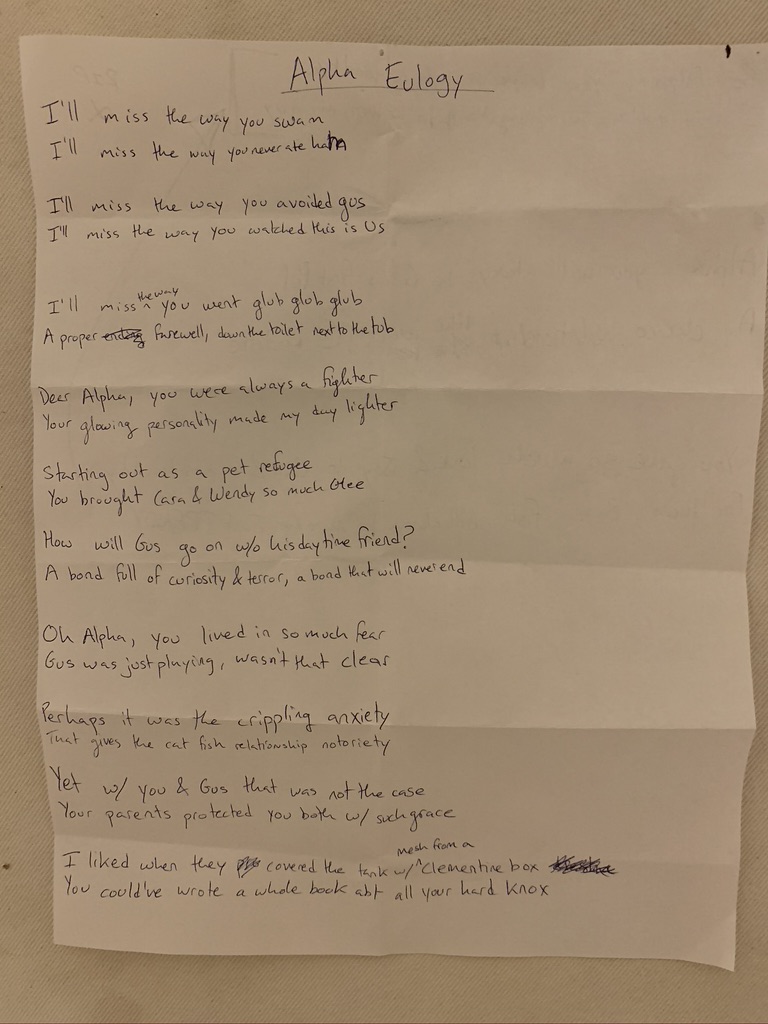 Alpha Eulogy
I'll miss the way you swam
I'll miss the way you never ate ham
I'll miss the way you avoided gus
I'll miss the way you watched this is Us
I'll miss the way you went glub glub glub
A proper farewell, down the toilet next to the tub
Dear Alpha, you were always a fighter
Your glowing personality made my day lighter
Starting out as a pet refugee
You brought Cara & Wendy so much Glee
How will Gus go on w/o his daytime friend?
A bond full of curiosity & terror, a bond that will never end
Oh Alpha, you lived in so much fear
Gus was just playing, wasn't that clear
Perhaps it was the crippling anxiety
That gives the cat fish relationship notoriety
Yet w/ you & Gus that was not the case
Your parents protected you both w/ such grace
I liked when they covered the tank w/ mesh from a Clementine box
You could've wrote a whole book abt all your hard knox